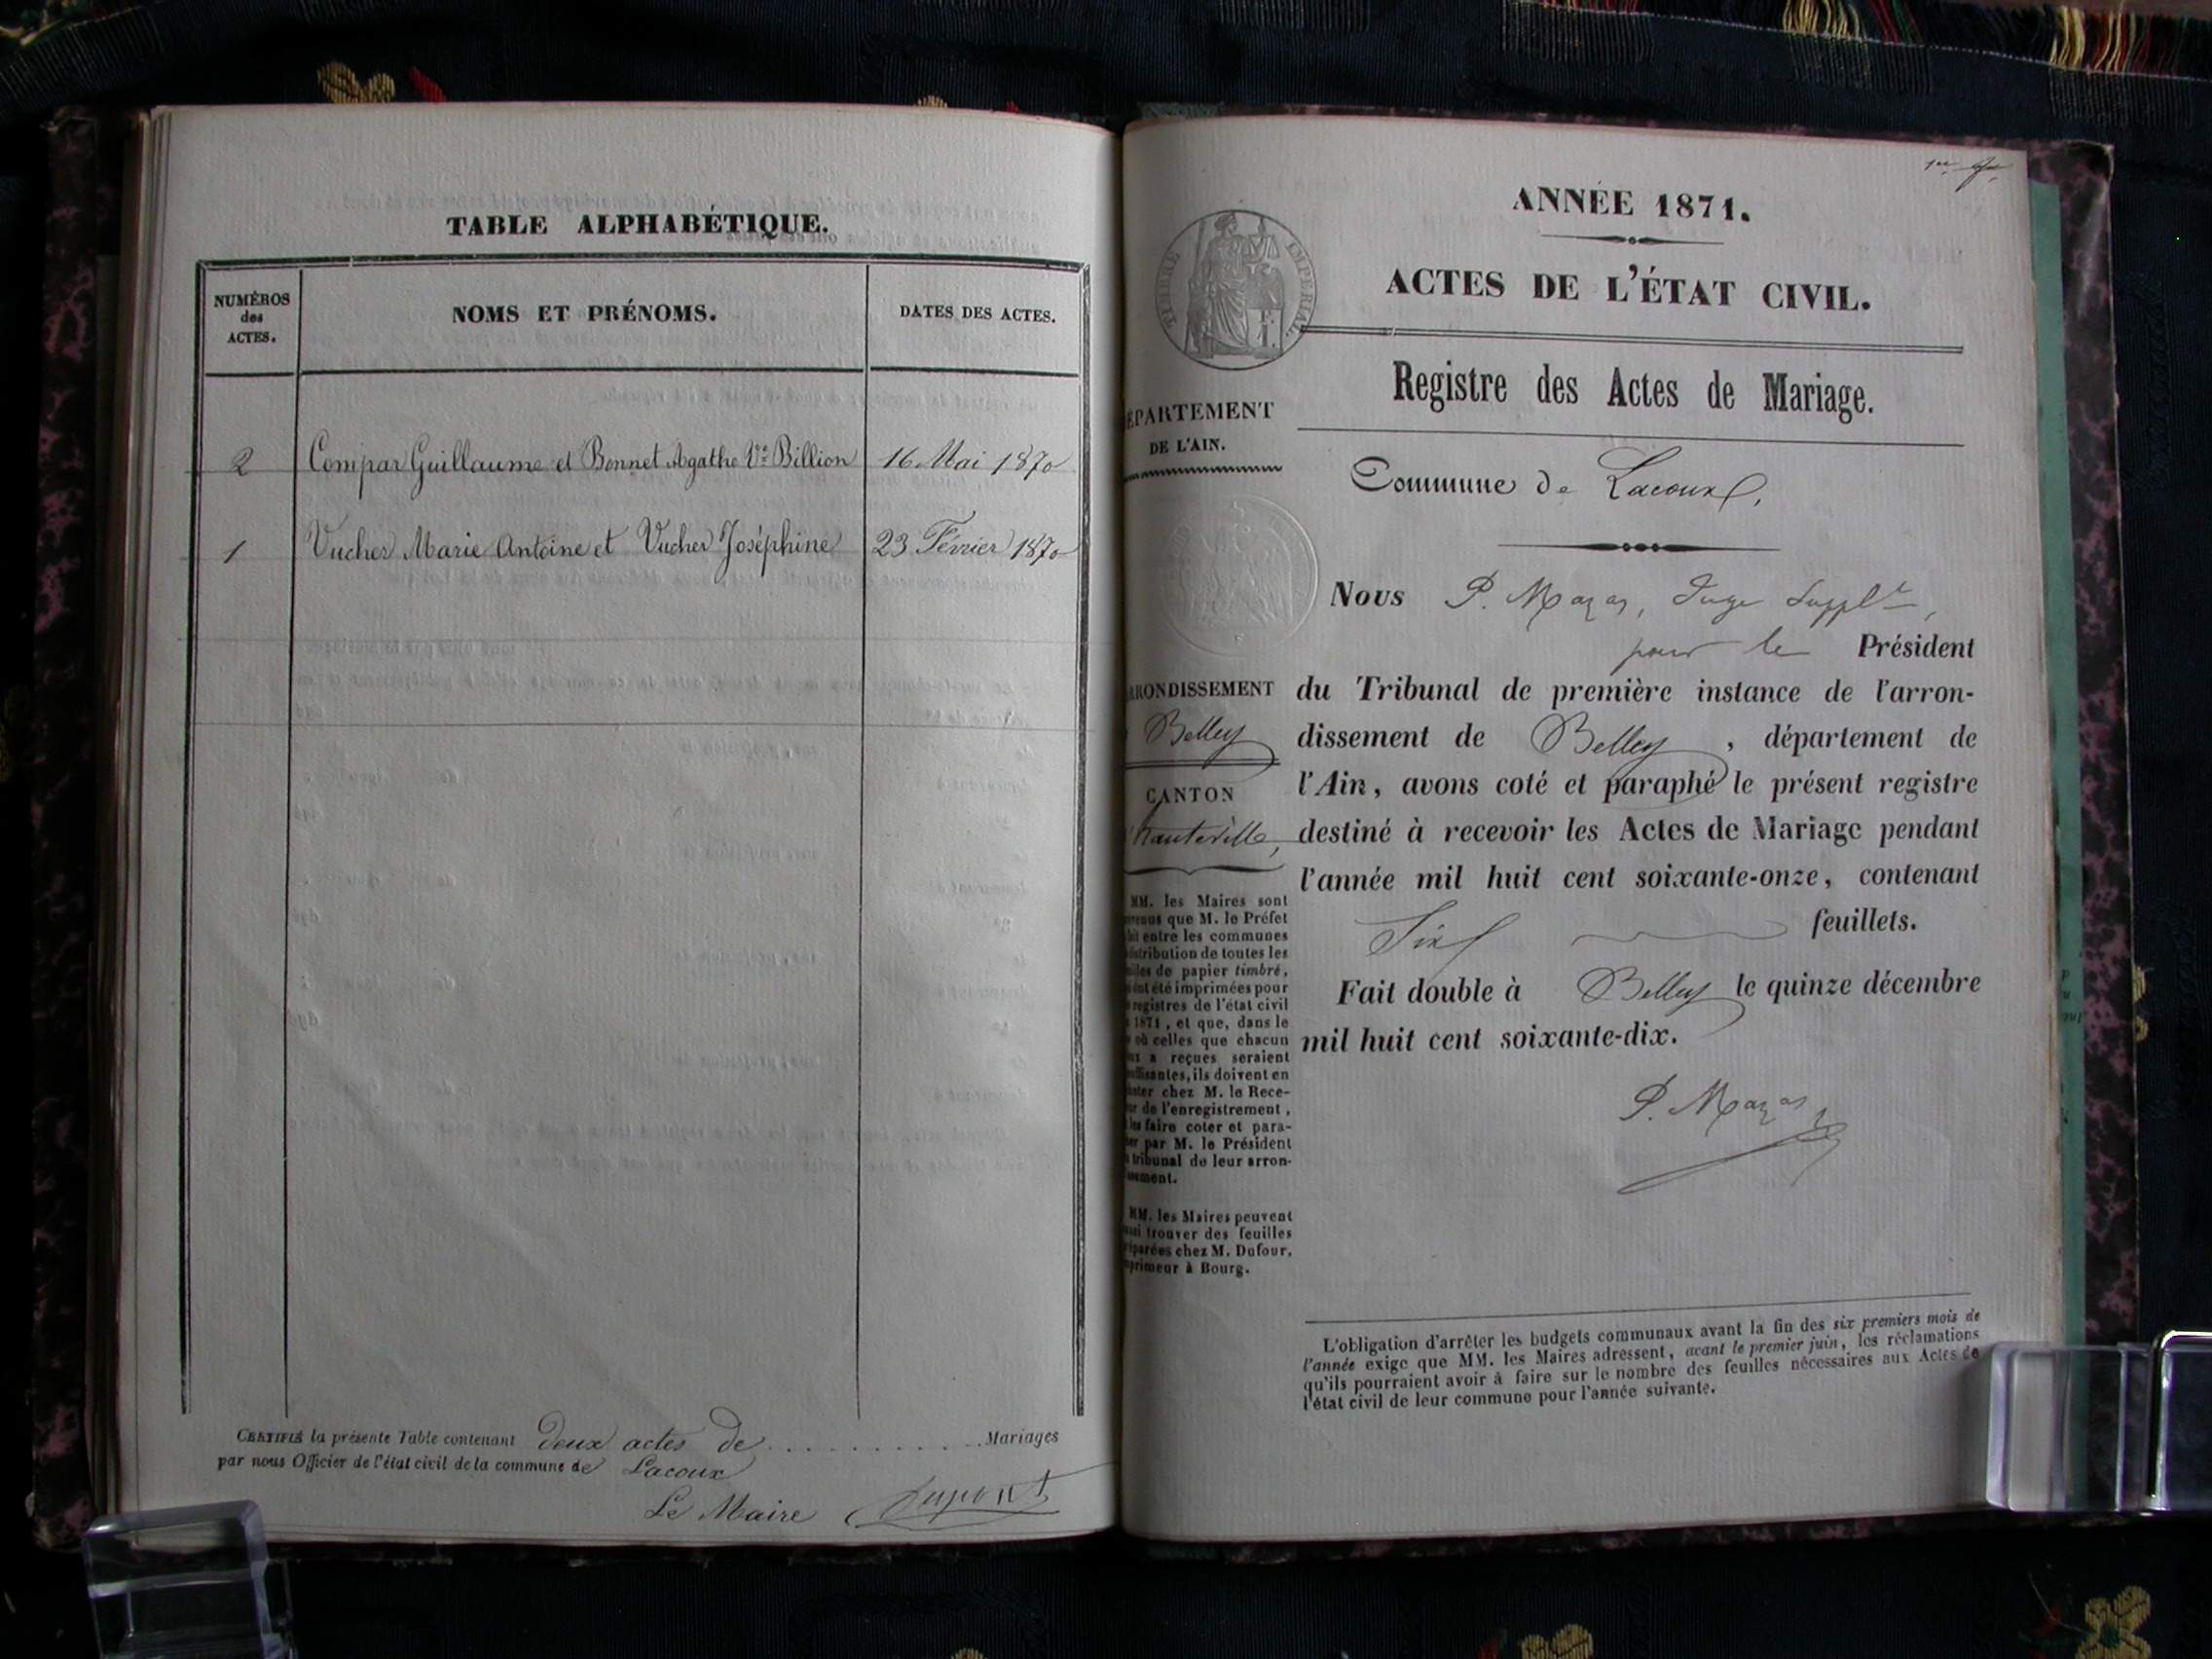 TABLE ALPHABÉTIQUE.
NUMÉROS
des
ACTES.
NOMS ET PRÉNOMS.
DATES DES ACTES.
2 Compar Guillaume et Bonnet Agathe Vve Billion 16 Mai 1870
1 Vucher Marie Antoine et Vucher Joséphine 23 Février 1870
CERTIFIÉ la présente Table contenant deux actes de ............ Mariages
par nous Officier de l'état civil de la commune de Lacoux
Le Maire Dupont
ANNÉE 1871.
ACTES DE L'ÉTAT CIVIL.
TIMBRE IMPERIAL
F.
1.
Registre des Actes de Mariage.
ÉPARTEMENT
DE L'AIN.
Commune de Lacoux,
Nous P. Mazas, Juge Supplt,
pour le Président
du Tribunal de première instance de l'arron-
dissement de Belley, département de
l'Ain, avons coté et paraphé le présent registre
destiné à recevoir les Actes de Mariage pendant
l'année mil huit cent soixante-onze, contenant
Six feuillets.
Fait double à Belley le quinze décembre
mil huit cent soixante-dix.
P. Mazas
RRONDISSEMENT
Belley
CANTON
d'Hauteville,
MM. les Maires sont
que M. le Préfet
entre les communes
stribution de toutes les
de papier timbré,
ont été imprimées pour
registres de l'état civil
1871, et que, dans le
où celles que chacun
a reçues seraient
uffisantes, ils doivent en
chez M. le Rece-
de l'enregistrement,
les faire coter et para-
par M. le Président
tribunal de leur arron-
MM. les Maires peuvent
trouver des feuilles
éparées chez M. Dufour,
primeur à Bourg.
L'obligation d'arrêter les budgets communaux avant la fin des six premiers mois de
l'année exige que MM. les Maires adressent, avant le premier juin, les réclamations
qu'ils pourraient avoir à faire sur le nombre des feuilles nécessaires aux Actes de
l'état civil de leur commune pour l'année suivante.